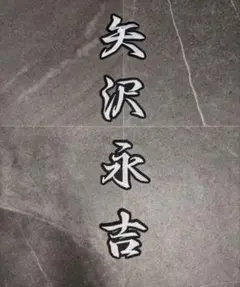 矢沢永吉